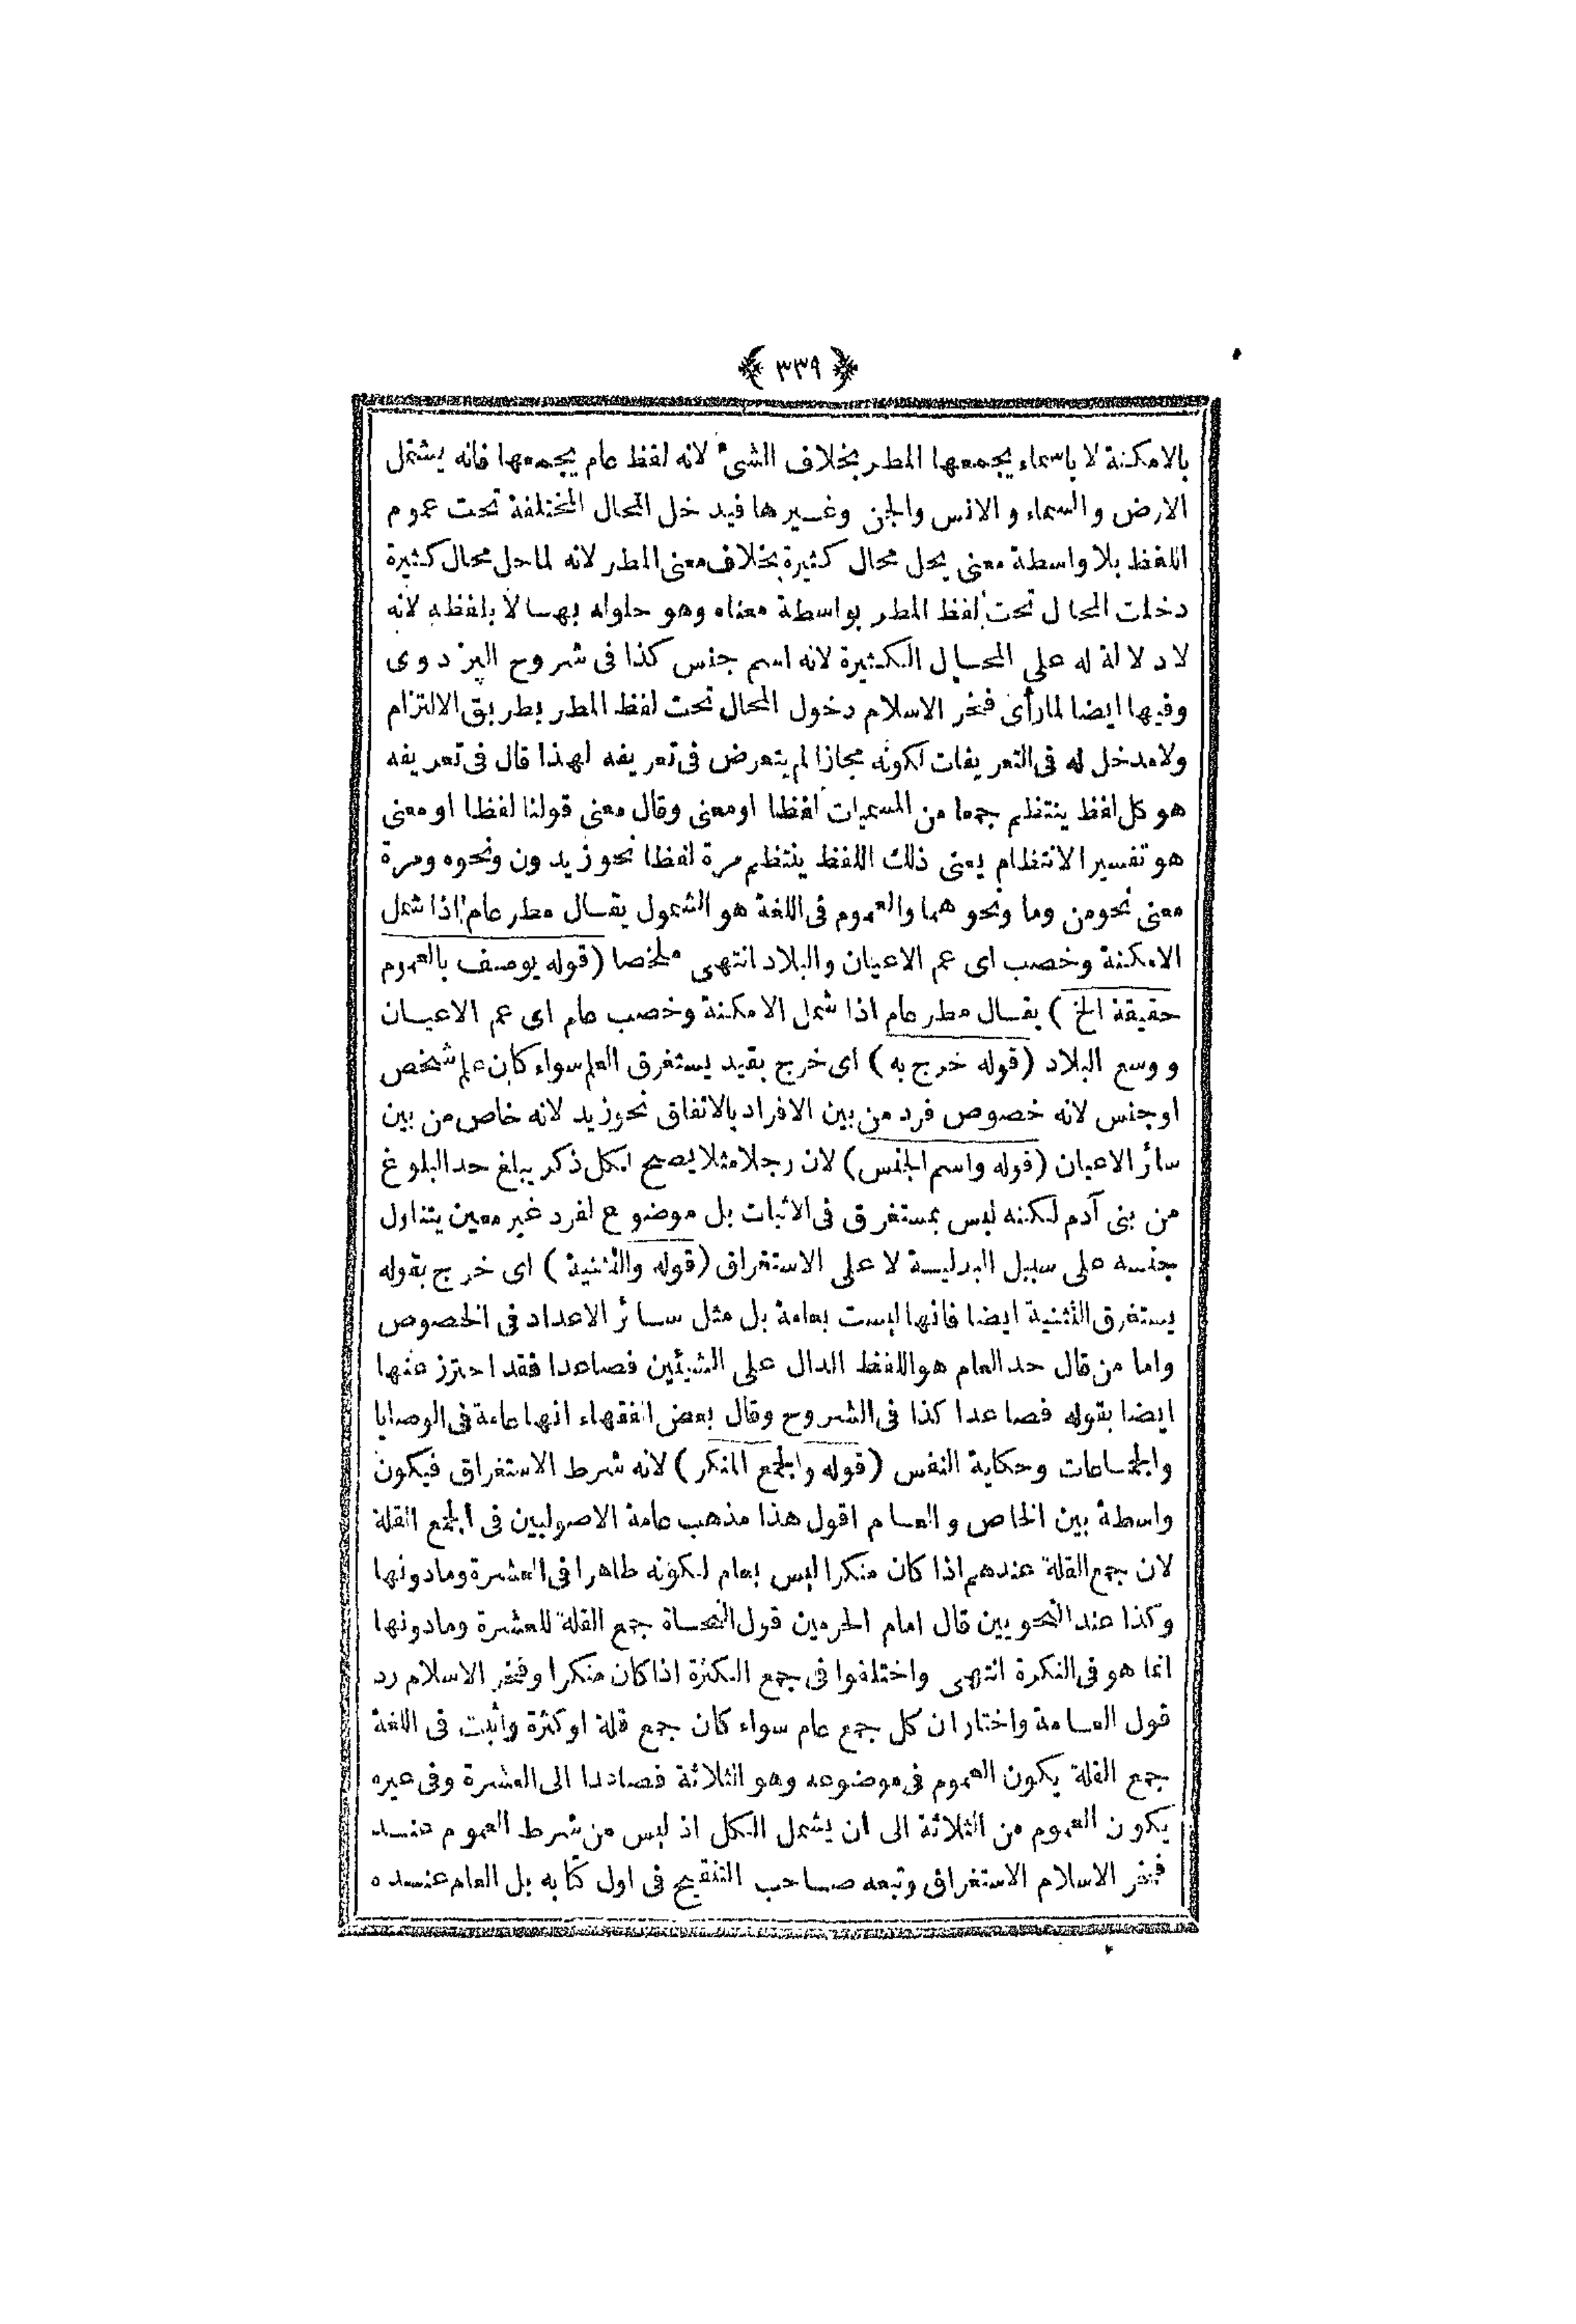 ﴿ ٣٣٩ ﴾
بالامكنة لا باسماء يجمعها المطر بخلاف الشئ لانه لفظ عام يجمعها فانه يشتمل
الارض والسماء والانس والجن وغيرها فيدخل المحال المختلفة تحت عموم
اللفظ بلا واسطة معنى يحل محال كثيرة بخلاف معنى المطر لانه لما حل محال كثيرة
دخلت المحال تحت لفظ المطر بواسطة معناه وهو حلوله بها لا بلفظه لانه
لا دلالة له على المحال الكثيرة لانه اسم جنس كذا فى شروح البزدوى
وفيها ايضا لما رأى فخر الاسلام دخول المحال تحت لفظ المطر بطريق الالتزام
ولا مدخل له فى التعريفات لكونه مجازا لم يتعرض فى تعريفه لهذا قال فى تعريفه
هو كل لفظ ينتظم جمعا من المسميات لفظا او معنى وقال معنى قولنا لفظا او معنى
هو تفسير الانتظام يعنى ذلك اللفظ ينتظم مرة لفظا نحو زيدون ونحوه ومرة
معنى نحو من وما ونحوهما والعموم فى اللغة هو الشمول يقال مطر عام اذا شمل
الامكنة وخصب اى عم الاعيان والبلاد انتهى ملخصا (قوله يوصف بالعموم
حقيقة الخ) يقال مطر عام اذا شمل الامكنة وخصب عام اى عم الاعيان
ووسع البلاد (قوله خرج به) اى خرج بقيد يستغرق العلم سواء كان علم شخص
او جنس لانه خصوص فرد من بين الافراد بالاتفاق نحو زيد لانه خاص من بين
سائر الاعيان (قوله واسم الجنس) لان رجلا مثلا يصح لكل ذكر يبلغ حد البلوغ
من بنى آدم لكنه ليس بمستغرق فى الاثبات بل موضوع لفرد غير معين يتناول
جنسه على سبيل البدلية لا على الاستغراق (قوله والتثنية) اى خرج بقوله
يستغرق التثنية ايضا فانها ليست بعامة بل مثل سائر الاعداد فى الخصوص
واما من قال حد العام هو اللفظ الدال على الشيئين فصاعدا فقد احترز عنها
ايضا بقوله فصاعدا كذا فى الشروح وقال بعض الفقهاء انها عامة فى الوصايا
والجماعات وحكاية النفس (قوله والجمع المنكر) لانه شرط الاستغراق فيكون
واسطة بين الخاص والعام اقول هذا مذهب عامة الاصوليين فى الجمع القلة
لان جمع القلة عندهم اذا كان منكرا ليس بعام لكونه ظاهرا فى العشرة ومادونها
وكذا عند النحويين قال امام الحرمين قول النحاة جمع القلة للعشرة ومادونها
انما هو فى النكرة انتهى واختلفوا فى جمع الكثرة اذا كان منكرا وفخر الاسلام رد
قول العامة واختار ان كل جمع عام سواء كان جمع قلة او كثرة واثبت فى اللغة
جمع القلة يكون العموم فى موضوعه وهو الثلاثة فصاعدا الى العشرة وفى غيره
يكون العموم من الثلاثة الى ان يشمل الكل اذ ليس من شرط العموم عند
فخر الاسلام الاستغراق وتبعه صاحب التنقيح فى اول كتابه بل العام عنده